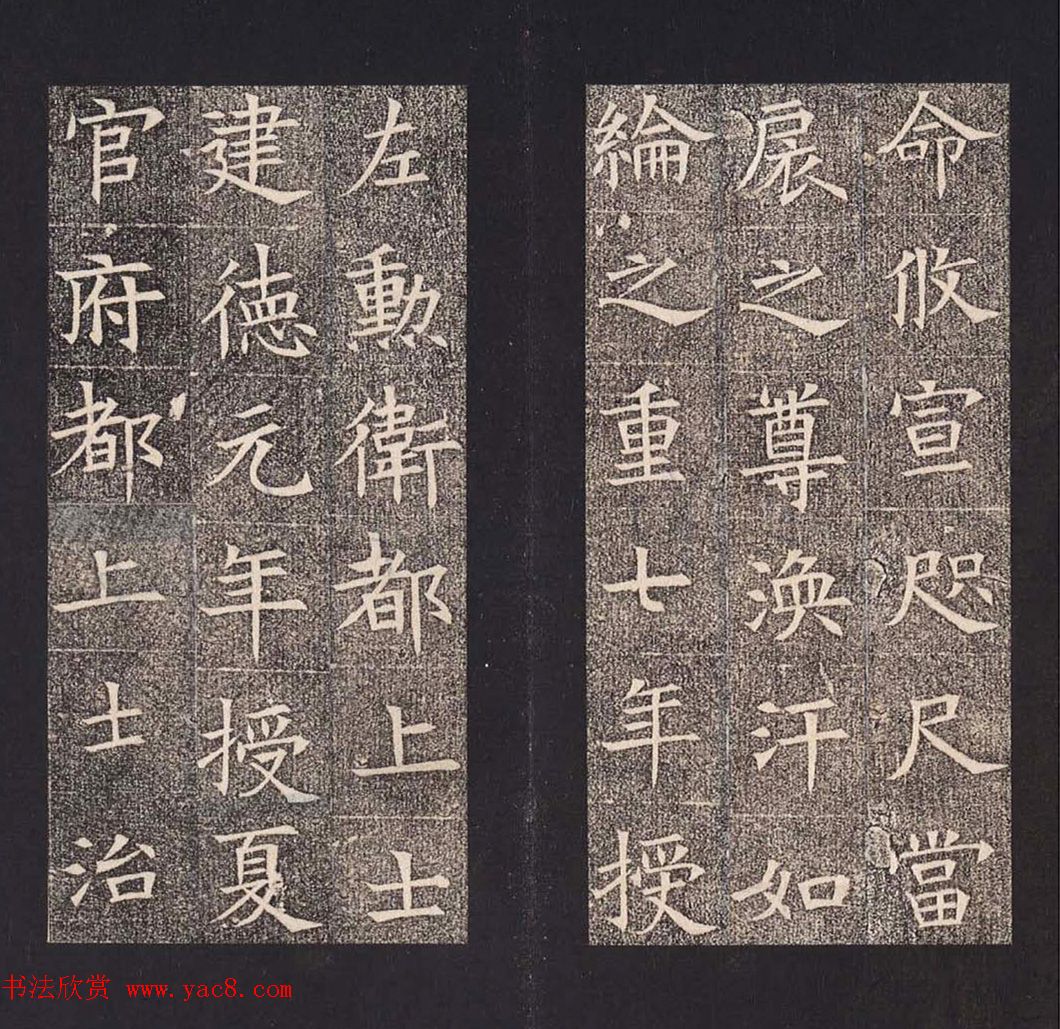 命攸宣咫尺當
扆之尊渙汗如
綸之重七年授
左勳衛都上士
建德元年授夏
官府都上士治
书法欣赏 www.yac8.com